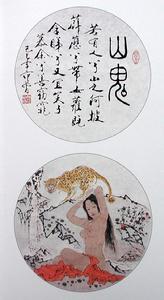 山鬼
若有人兮山之阿被
薜荔兮带女萝既
含睇兮又宜笑子
慕余兮善窈窕